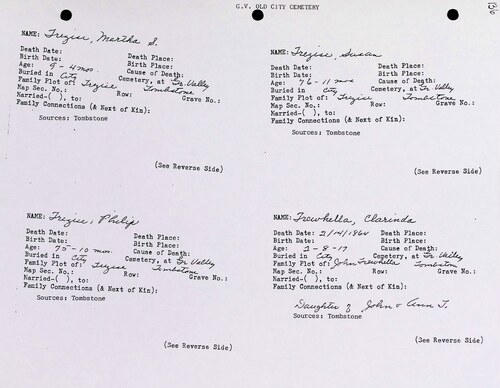 G.V. OLD CITY CEMETERY
NAME: Trezise, Martha S.
Death Date: Death Place:
Birth Date: Birth Place:
Age: 9-4 mos Cause of Death:
Buried in City Cemetery, at Gr. Valley
Family Plot of: Trezise Tombstone
Map Sec. No.: Row: Grave No.:
Married-( ), to:
Family Connections (& Next of Kin):
Sources: Tombstone
(See Reverse Side)
NAME: Trezise, Susan
Death Date: Death Place:
Birth Date: Birth Place:
Age: 76-11 mos Cause of Death:
Buried in City Cemetery, at Gr. Valley
Family Plot of: Trezise Tombstone
Map Sec. No.: Row: Grave No.:
Married-( ), to:
Family Connections (& Next of Kin):
Sources: Tombstone
(See Reverse Side)
NAME: Trezise, Philip
Death Date: Death Place:
Birth Date: Birth Place:
Age: 75-10 mos. Cause of Death:
Buried in City Cemetery, at Gr. Valley
Family Plot of: Trezise Tombstone
Map Sec. No.: Row: Grave No.:
Married-( ), to:
Family Connections (& Next of Kin):
Sources: Tombstone
(See Reverse Side)
NAME: Trewhella, Clarinda
Death Date: 2/14/1864 Death Place:
Birth Date: Birth Place:
Age: 2-8-17 Cause of Death:
Buried in City Cemetery, at Gr. Valley
Family Plot of: John Trewhella Tombstone
Map Sec. No.: Row: Grave No.:
Married-( ), to:
Family Connections (& Next of Kin):
Daughter of John & Ann T.
Sources: Tombstone
(See Reverse Side)